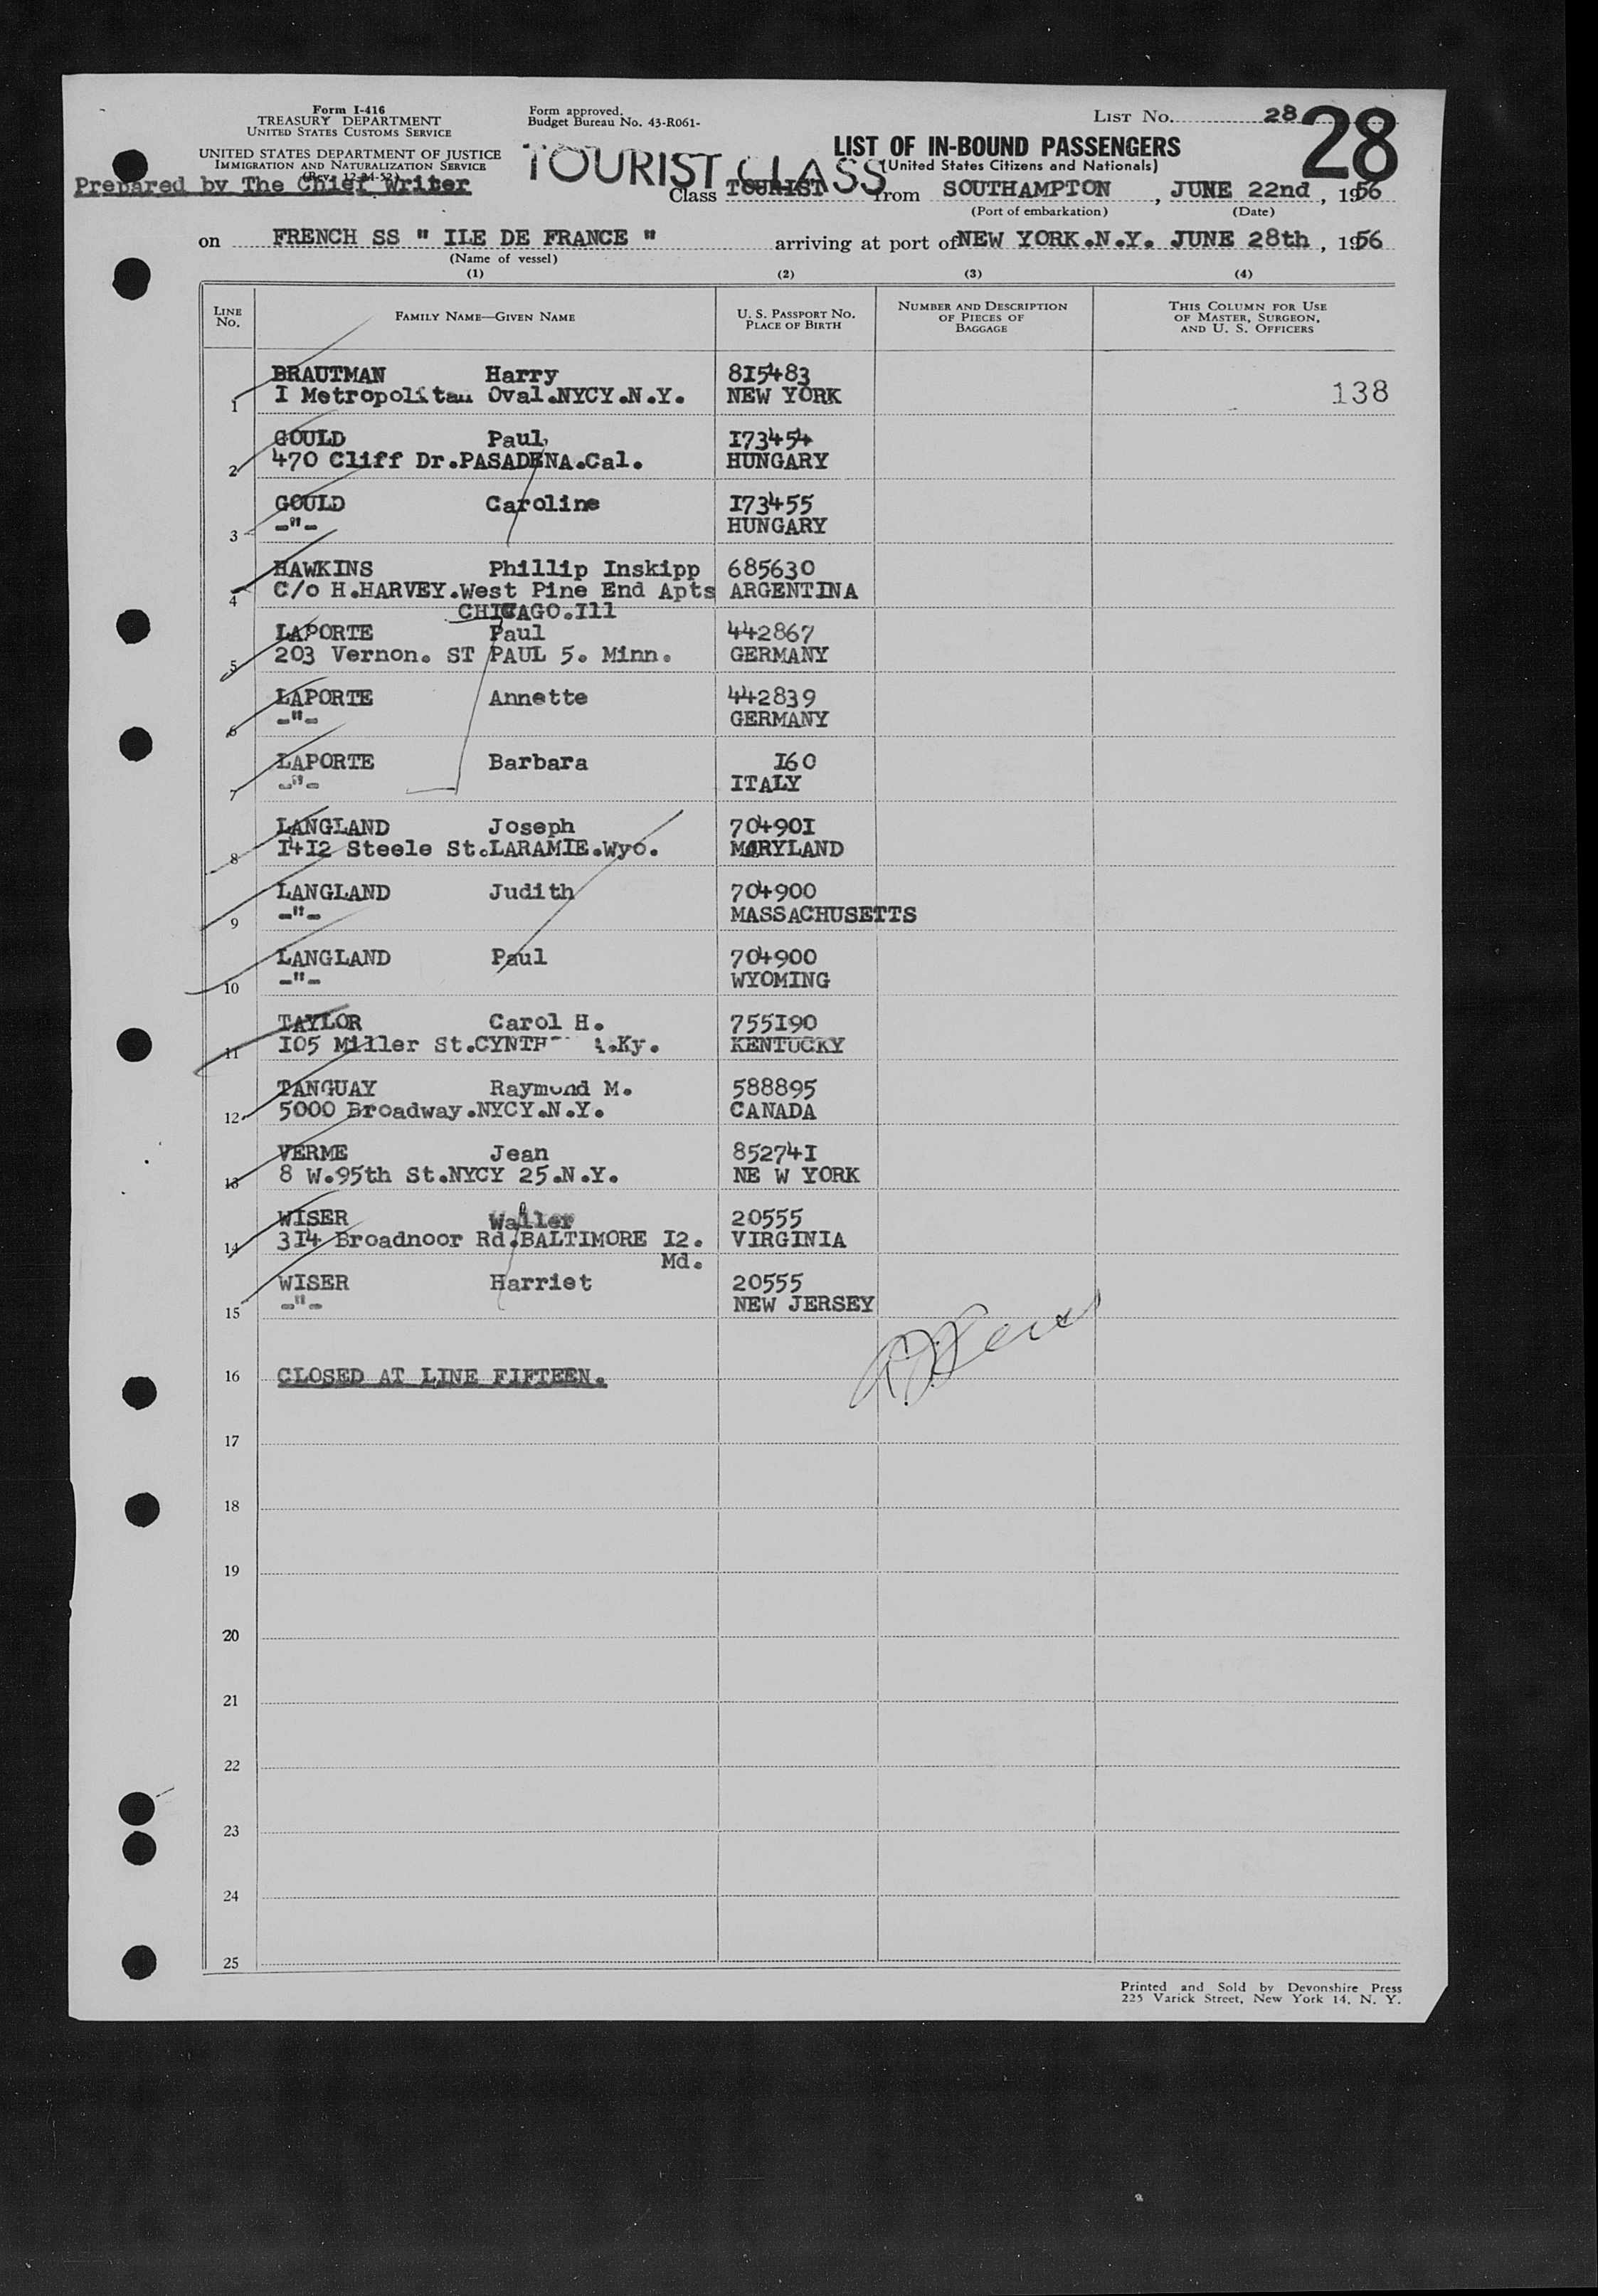 Form I-416
TREASURY DEPARTMENT
UNITED STATES CUSTOMS SERVICE
UNITED STATES DEPARTMENT OF JUSTICE
IMMIGRATION AND NATURALIZATION SERVICE
(Rev. 12-24-52)
Prepared by The Chief Writer
Form approved.
Budget Bureau No. 43-R061-
TOURIST CLASS
LIST No. 28
28
LIST OF IN-BOUND PASSENGERS
(United States Citizens and Nationals)
Class TOURIST from SOUTHAMPTON, JUNE 22nd, 1956
(Port of embarkation) (Date)
on FRENCH SS " ILE DE FRANCE " arriving at port of NEW YORK.N.Y. JUNE 28th, 1956
(Name of vessel)
(1) (2) (3) (4)
LINE No. FAMILY NAME—GIVEN NAME U. S. PASSPORT No. PLACE OF BIRTH NUMBER AND DESCRIPTION OF PIECES OF BAGGAGE THIS COLUMN FOR USE OF MASTER, SURGEON, AND U. S. OFFICERS
BRAUTMAN Harry 8I5483
1 I Metropolitan Oval.NYCY.N.Y. NEW YORK 138
GOULD Paul I73454
2 470 Cliff Dr.PASADENA.Cal. HUNGARY
GOULD Caroline I73455
3 -"- HUNGARY
HAWKINS Phillip Inskipp 685630
4 C/o H.HARVEY.West Pine End Apts ARGENTINA
CHICAGO.Ill
LAPORTE Paul 442867
5 203 Vernon. ST PAUL 5. Minn. GERMANY
LAPORTE Annette 442839
6 -"- GERMANY
LAPORTE Barbara I60
7 -"- ITALY
LANGLAND Joseph 70490I
8 I4I2 Steele St.LARAMIE.Wyo. MARYLAND
LANGLAND Judith 704900
9 -"- MASSACHUSETTS
LANGLAND Paul 704900
10 -"- WYOMING
TAYLOR Carol H. 755I90
11 I05 Miller St. .Ky. KENTUCKY
TANGUAY Raymond M. 588895
12 5000 Broadway.NYCY.N.Y. CANADA
VERME Jean 85274I
13 8 W.95th St.NYCY 25.N.Y. NE W YORK
WISER Waller 20555
14 3I4 Broadnoor Rd.BALTIMORE I2. VIRGINIA
Md.
WISER Harriet 20555
15 -"- NEW JERSEY
16 CLOSED AT LINE FIFTEEN.
17
18
19
20
21
22
23
24
25
Printed and Sold by Devonshire Press
225 Varick Street, New York 14, N. Y.